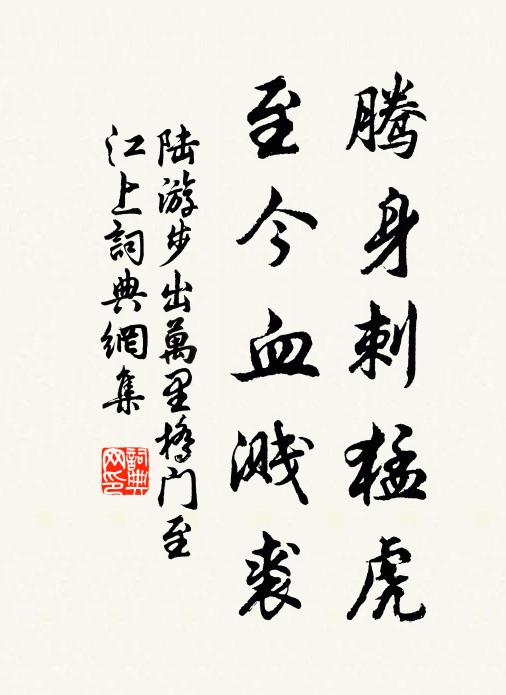 腾身刺猛虎
至今血溅裘
陆游步出萬里橋门至
江上詞典網集
詞典网印